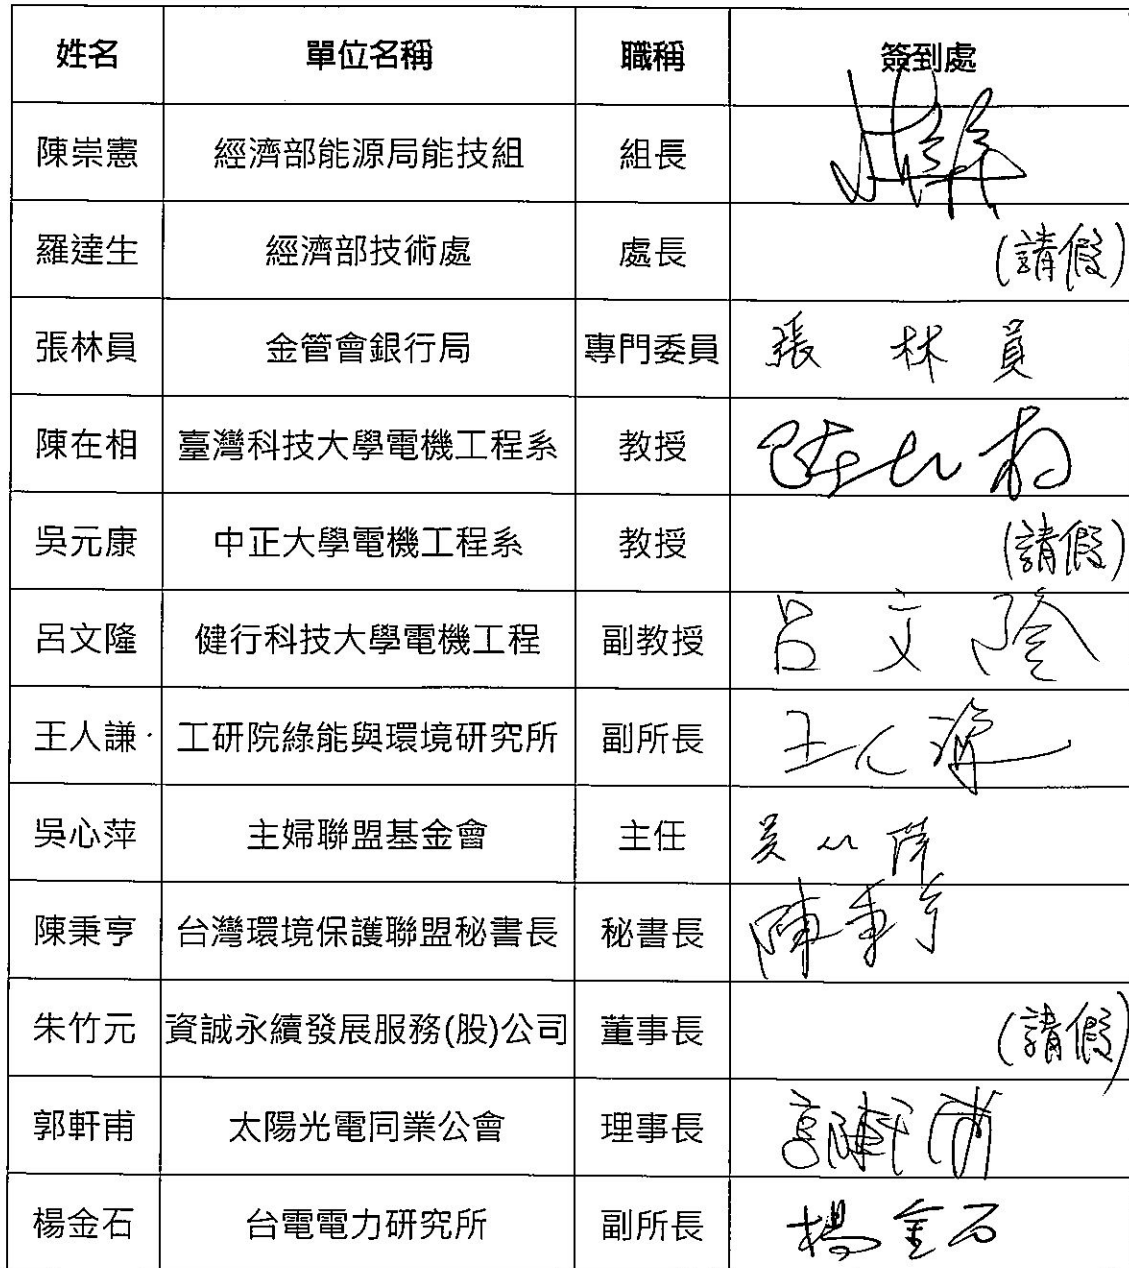 姓名 單位名稱 職稱 簽到處
陳崇憲 經濟部能源局能技組 組長
羅達生 經濟部技術處 處長 (請假)
張林員 金管會銀行局 專門委員 張林員
陳在相 臺灣科技大學電機工程系 教授 陳在相
吳元康 中正大學電機工程系 教授 (請假)
呂文隆 健行科技大學電機工程 副教授 呂文隆
王人謙 工研院綠能與環境研究所 副所長 王人謙
吳心萍 主婦聯盟基金會 主任 吳心萍
陳秉亨 台灣環境保護聯盟秘書長 秘書長 陳秉亨
朱竹元 資誠永續發展服務(股)公司 董事長 (請假)
郭軒甫 太陽光電同業公會 理事長 郭軒甫
楊金石 台電電力研究所 副所長 楊金石